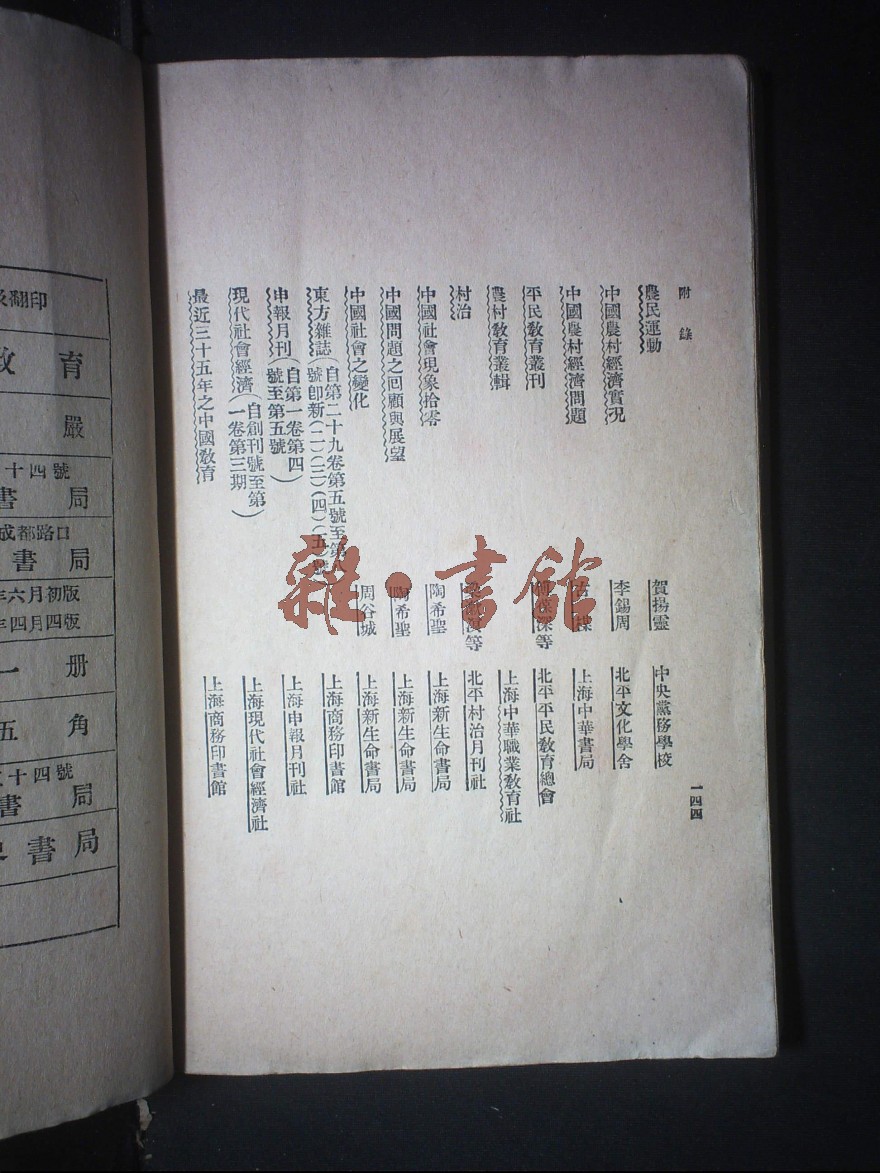 附錄
農民運動 賀揚靈 中央黨務學校
中國農村經濟實況 李錫周 北平文化學舍
中國農村經濟問題 古楳 上海中華書局
平民教育叢刊 深等 北平平民教育總會
農村教育叢輯 上海中華職業教育社
村治 等 北平村治月刊社
中國社會現象拾零 陶希聖 上海新生命書局
中國問題之回顧與展望 陶希聖 上海新生命書局
中國社會之變化 周谷城 上海新生命書局
東方雜誌(自第二十九卷第五號至第八號卽新(一)(二)(四)(五)號) 上海商務印書館
申報月刊(自第一卷第四號至第五號) 上海申報月刊社
現代社會經濟(自創刊號至第一卷第三期) 上海現代社會經濟社
最近三十五年之中國教育 上海商務印書館
一四四
雜·書館
翻印
教育
嚴
十四號
書局
成都路口
書局
年六月初版
年四月四版
一册
五角
十四號
書局
書局